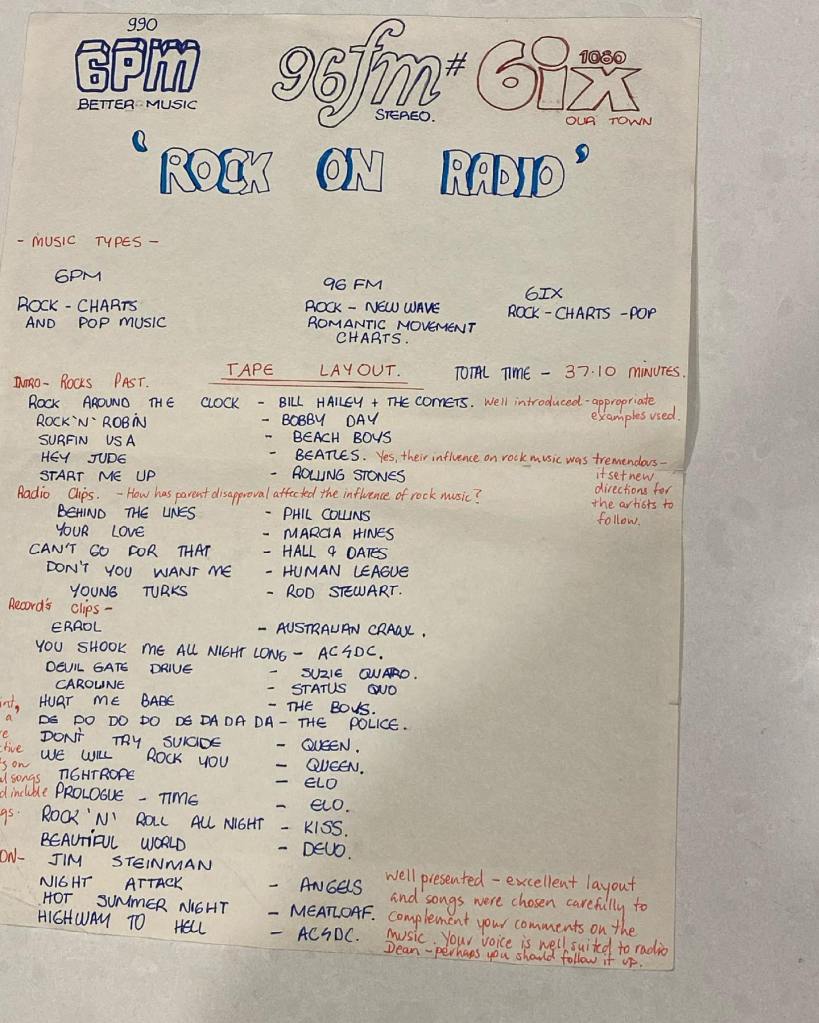 990
6PM
BETTER MUSIC
96fm #
STEREO.
1080
6iX
OUR TOWN
'ROCK ON RADIO'
- MUSIC TYPES -
6PM
ROCK - CHARTS
AND POP MUSIC
96 FM
ROCK - NEW WAVE
ROMANTIC MOVEMENT
CHARTS.
6IX
ROCK - CHARTS - POP
TAPE LAYOUT. TOTAL TIME - 37.10 MINUTES.
INTRO - ROCKS PAST.
ROCK AROUND THE CLOCK - BILL HAILEY + THE COMETS. Well introduced - appropriate
examples used.
ROCK 'N' ROBIN - BOBBY DAY
SURFIN USA - BEACH BOYS
HEY JUDE - BEATLES. Yes, their influence on rock music was tremendous -
it set new
directions for
the artists to
follow.
START ME UP - ROLLING STONES
Radio Clips. - How has parent disapproval affected the influence of rock music?
BEHIND THE LINES - PHIL COLLINS
YOUR LOVE - MARCIA HINES
CAN'T GO FOR THAT - HALL & OATES
DON'T YOU WANT ME - HUMAN LEAGUE
YOUNG TURKS - ROD STEWART.
Record's Clips -
ERROL - AUSTRALIAN CRAWL.
YOU SHOOK ME ALL NIGHT LONG - AC⚡DC.
DEVIL GATE DRIVE - SUZIE QUARO.
CAROLINE - STATUS QUO
HURT ME BABE - THE BOYS.
DE DO DO DO DE DA DA DA - THE POLICE.
DON'T TRY SUICIDE - QUEEN.
WE WILL ROCK YOU - QUEEN.
TIGHTROPE - ELO
PROLOGUE - TIME - ELO.
ROCK 'N' ROLL ALL NIGHT - KISS.
BEAUTIFUL WORLD - DEVO.
ON - JIM STEINMAN
NIGHT ATTACK - ANGELS
HOT SUMMER NIGHT - MEATLOAF.
HIGHWAY TO HELL - AC⚡DC.
songs
include
Well presented - excellent layout
and songs were chosen carefully to
complement your comments on the
music. Your voice is well suited to radio
Dean - perhaps you should follow it up.